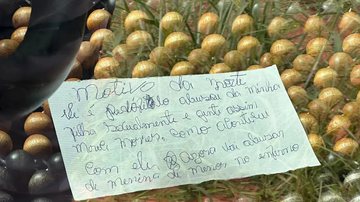 Motivo da morte
ele é abusou da minha
filha sexualmente e assim
morrer, como aconteceu
com ele Agora vai abusar
de menina de menor no inferno